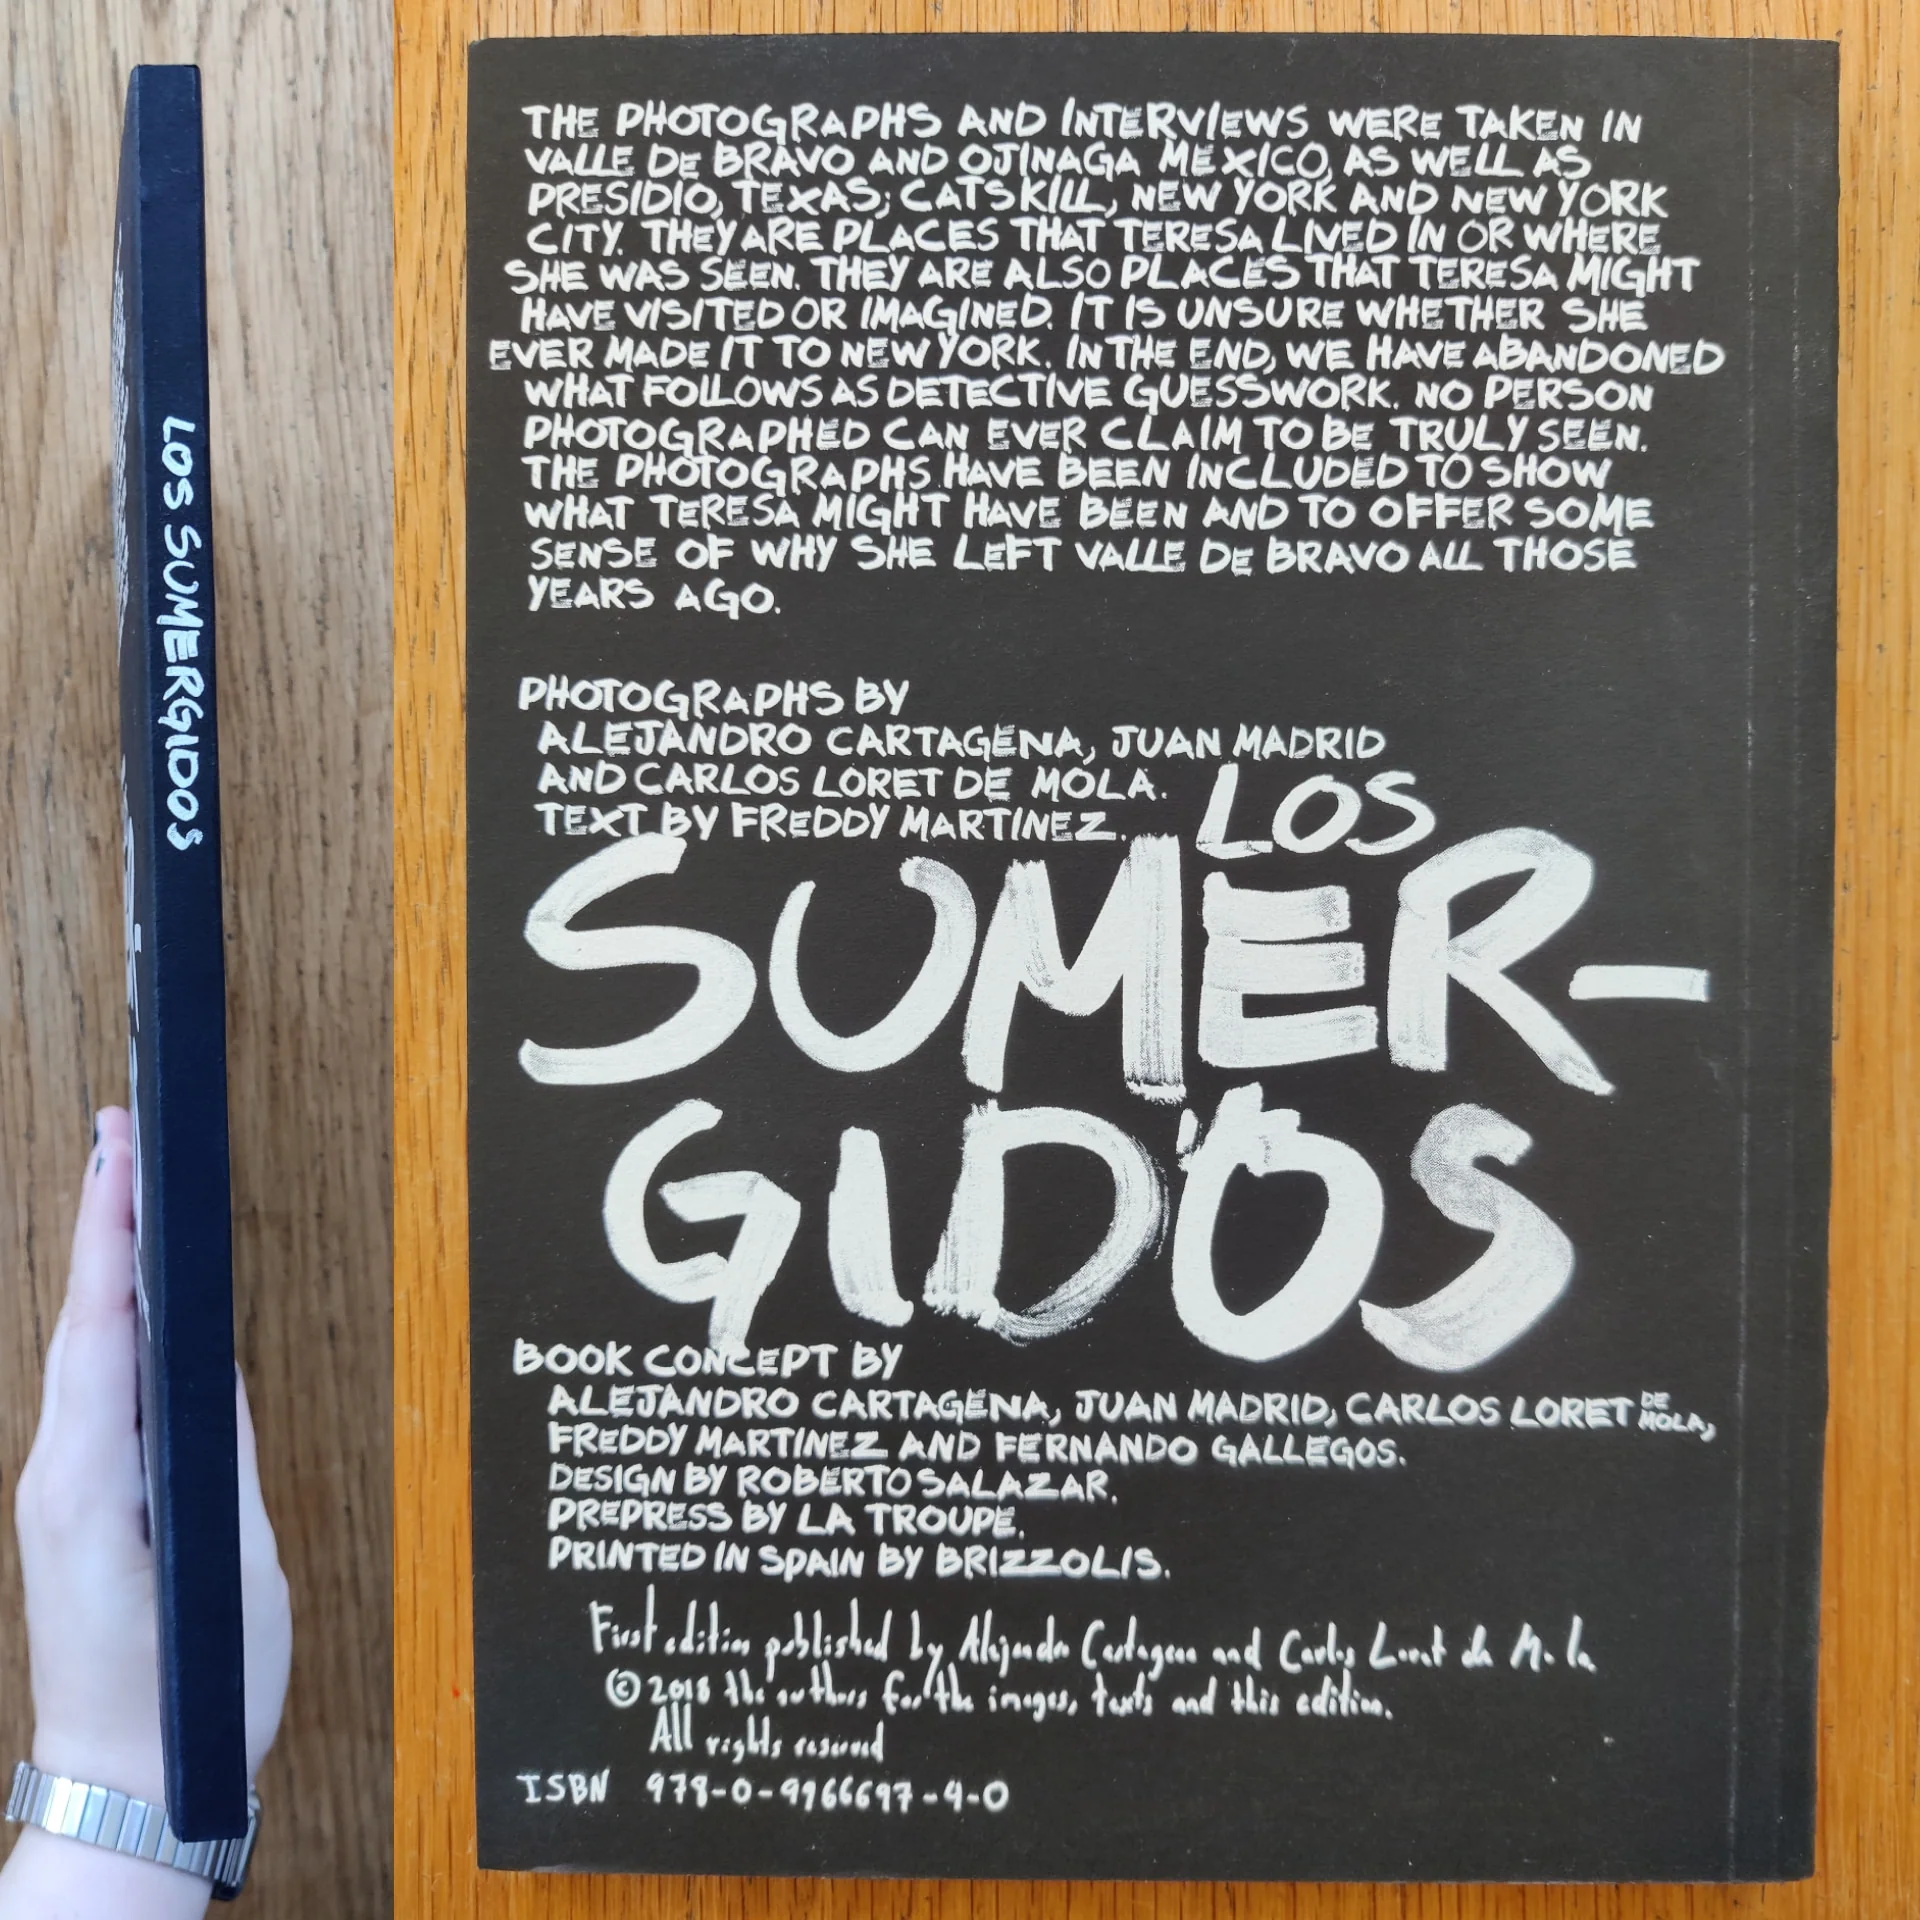 LOS SUMERGIDOS
THE PHOTOGRAPHS AND INTERVIEWS WERE TAKEN IN
VALLE DE BRAVO AND OJINAGA MEXICO, AS WELL AS
PRESIDIO, TEXAS; CATSKILL, NEW YORK AND NEW YORK
CITY. THEY ARE PLACES THAT TERESA LIVED IN OR WHERE
SHE WAS SEEN. THEY ARE ALSO PLACES THAT TERESA MIGHT
HAVE VISITED OR IMAGINED. IT IS UNSURE WHETHER SHE
EVER MADE IT TO NEW YORK. IN THE END, WE HAVE ABANDONED
WHAT FOLLOWS AS DETECTIVE GUESSWORK. NO PERSON
PHOTOGRAPHED CAN EVER CLAIM TO BE TRULY SEEN.
THE PHOTOGRAPHS HAVE BEEN INCLUDED TO SHOW
WHAT TERESA MIGHT HAVE BEEN AND TO OFFER SOME
SENSE OF WHY SHE LEFT VALLE DE BRAVO ALL THOSE
YEARS AGO.
PHOTOGRAPHS BY
ALEJANDRO CARTAGENA, JUAN MADRID
AND CARLOS LORET DE MOLA.
TEXT BY FREDDY MARTINEZ.
LOS
SUMER-
GIDOS
BOOK CONCEPT BY
ALEJANDRO CARTAGENA, JUAN MADRID, CARLOS LORET DE MOLA,
FREDDY MARTINEZ AND FERNANDO GALLEGOS.
DESIGN BY ROBERTO SALAZAR.
PREPRESS BY LA TROUPE.
PRINTED IN SPAIN BY BRIZZOLIS.
First edition published by Alejandro Cartagena and Carlos Loret de Mola
© 2018 the authors for the images, texts and this edition.
All rights reserved
ISBN 978-0-9966697-4-0